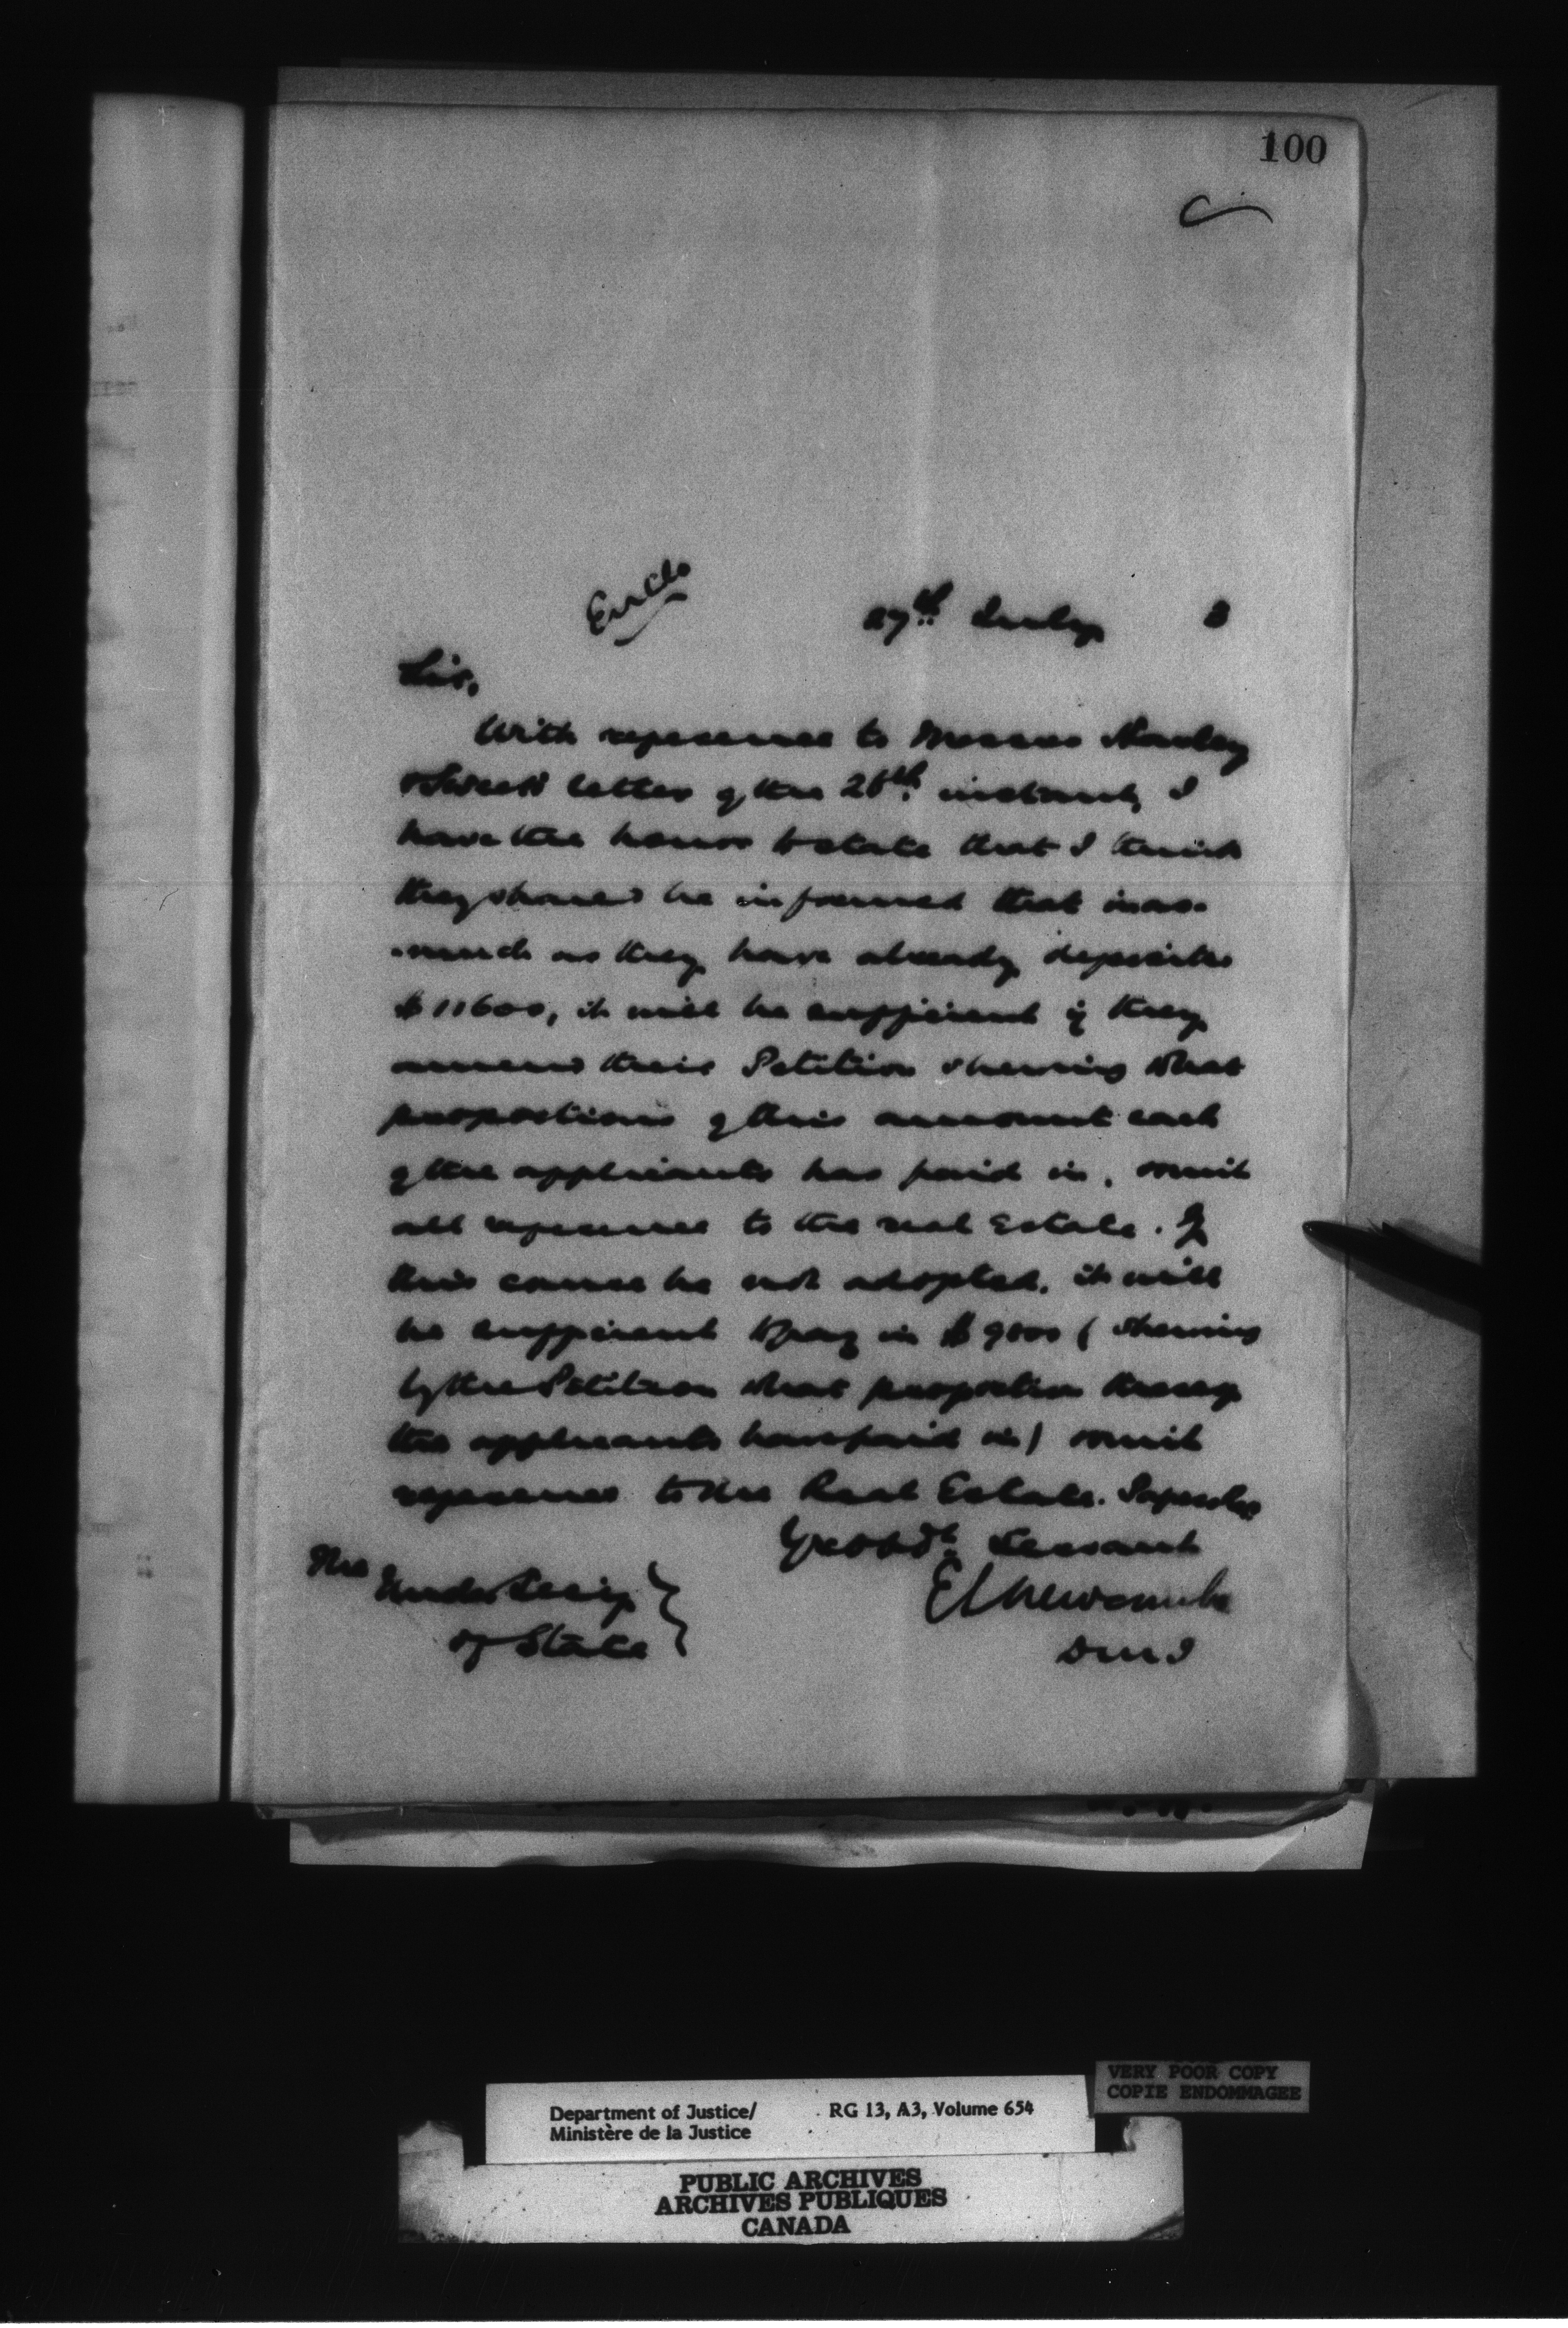 100
Enclo
27th July 3
Sir,
With reference to Messrs
letter of the 26th instant, I
have the honor to state that I think
they should be informed that inas-
-much as they have already deposited
$11600, it will be sufficient if they
amend their Petition shewing what
proportions of this amount each
of the applicants has paid in, omit
all reference to the real Estate. If
this course be not adopted, it will
be sufficient to pay in $9000 ( shewing
by the Petition what proportion thereof
the applicants have paid in) omit
reference to the Real Estate. I
Yr obdt Servant
E L Newcombe
DMJ
The
Under Secy
of State
VERY POOR COPY
COPIE ENDOMMAGEE
Department of Justice/ RG 13, A3, Volume 654
Ministère de la Justice
PUBLIC ARCHIVES
ARCHIVES PUBLIQUES
CANADA